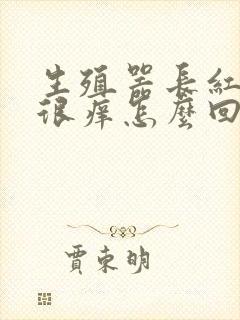 生殖器長紅
很痒怎麼回
賈東明